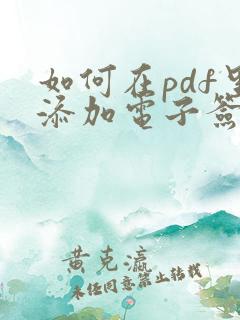 如何在pdf里
添加電子簽
黄克瀛
未经同意禁止转载